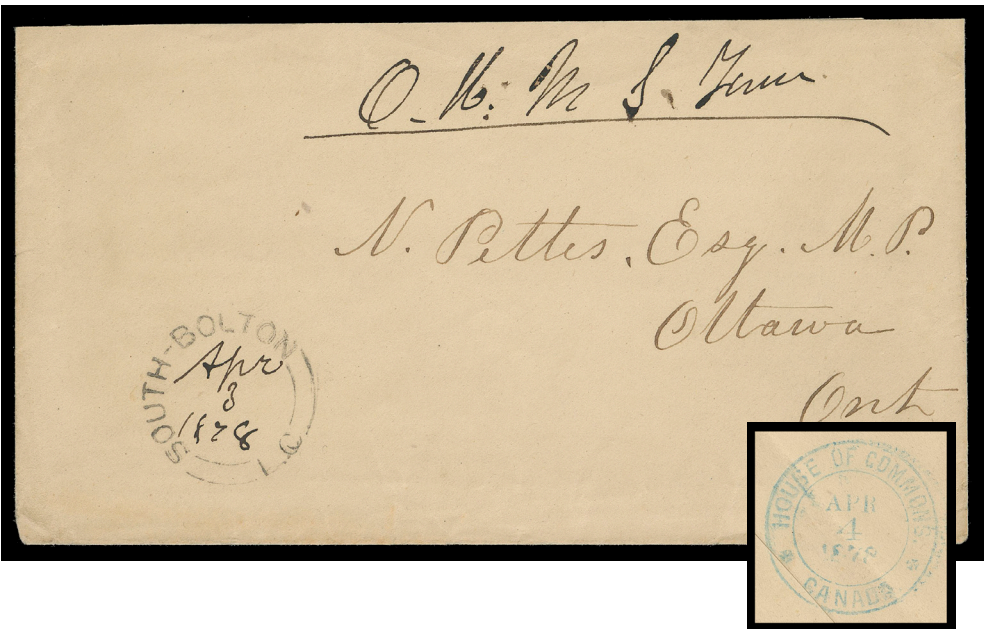 O. H. M. S. Free
N. Pettes, Esq. M.P.
Ottawa
Ont
SOUTH-BOLTON
Apr
3
1878
Q
HOUSE OF COMMONS
APR
4
1878
CANADA